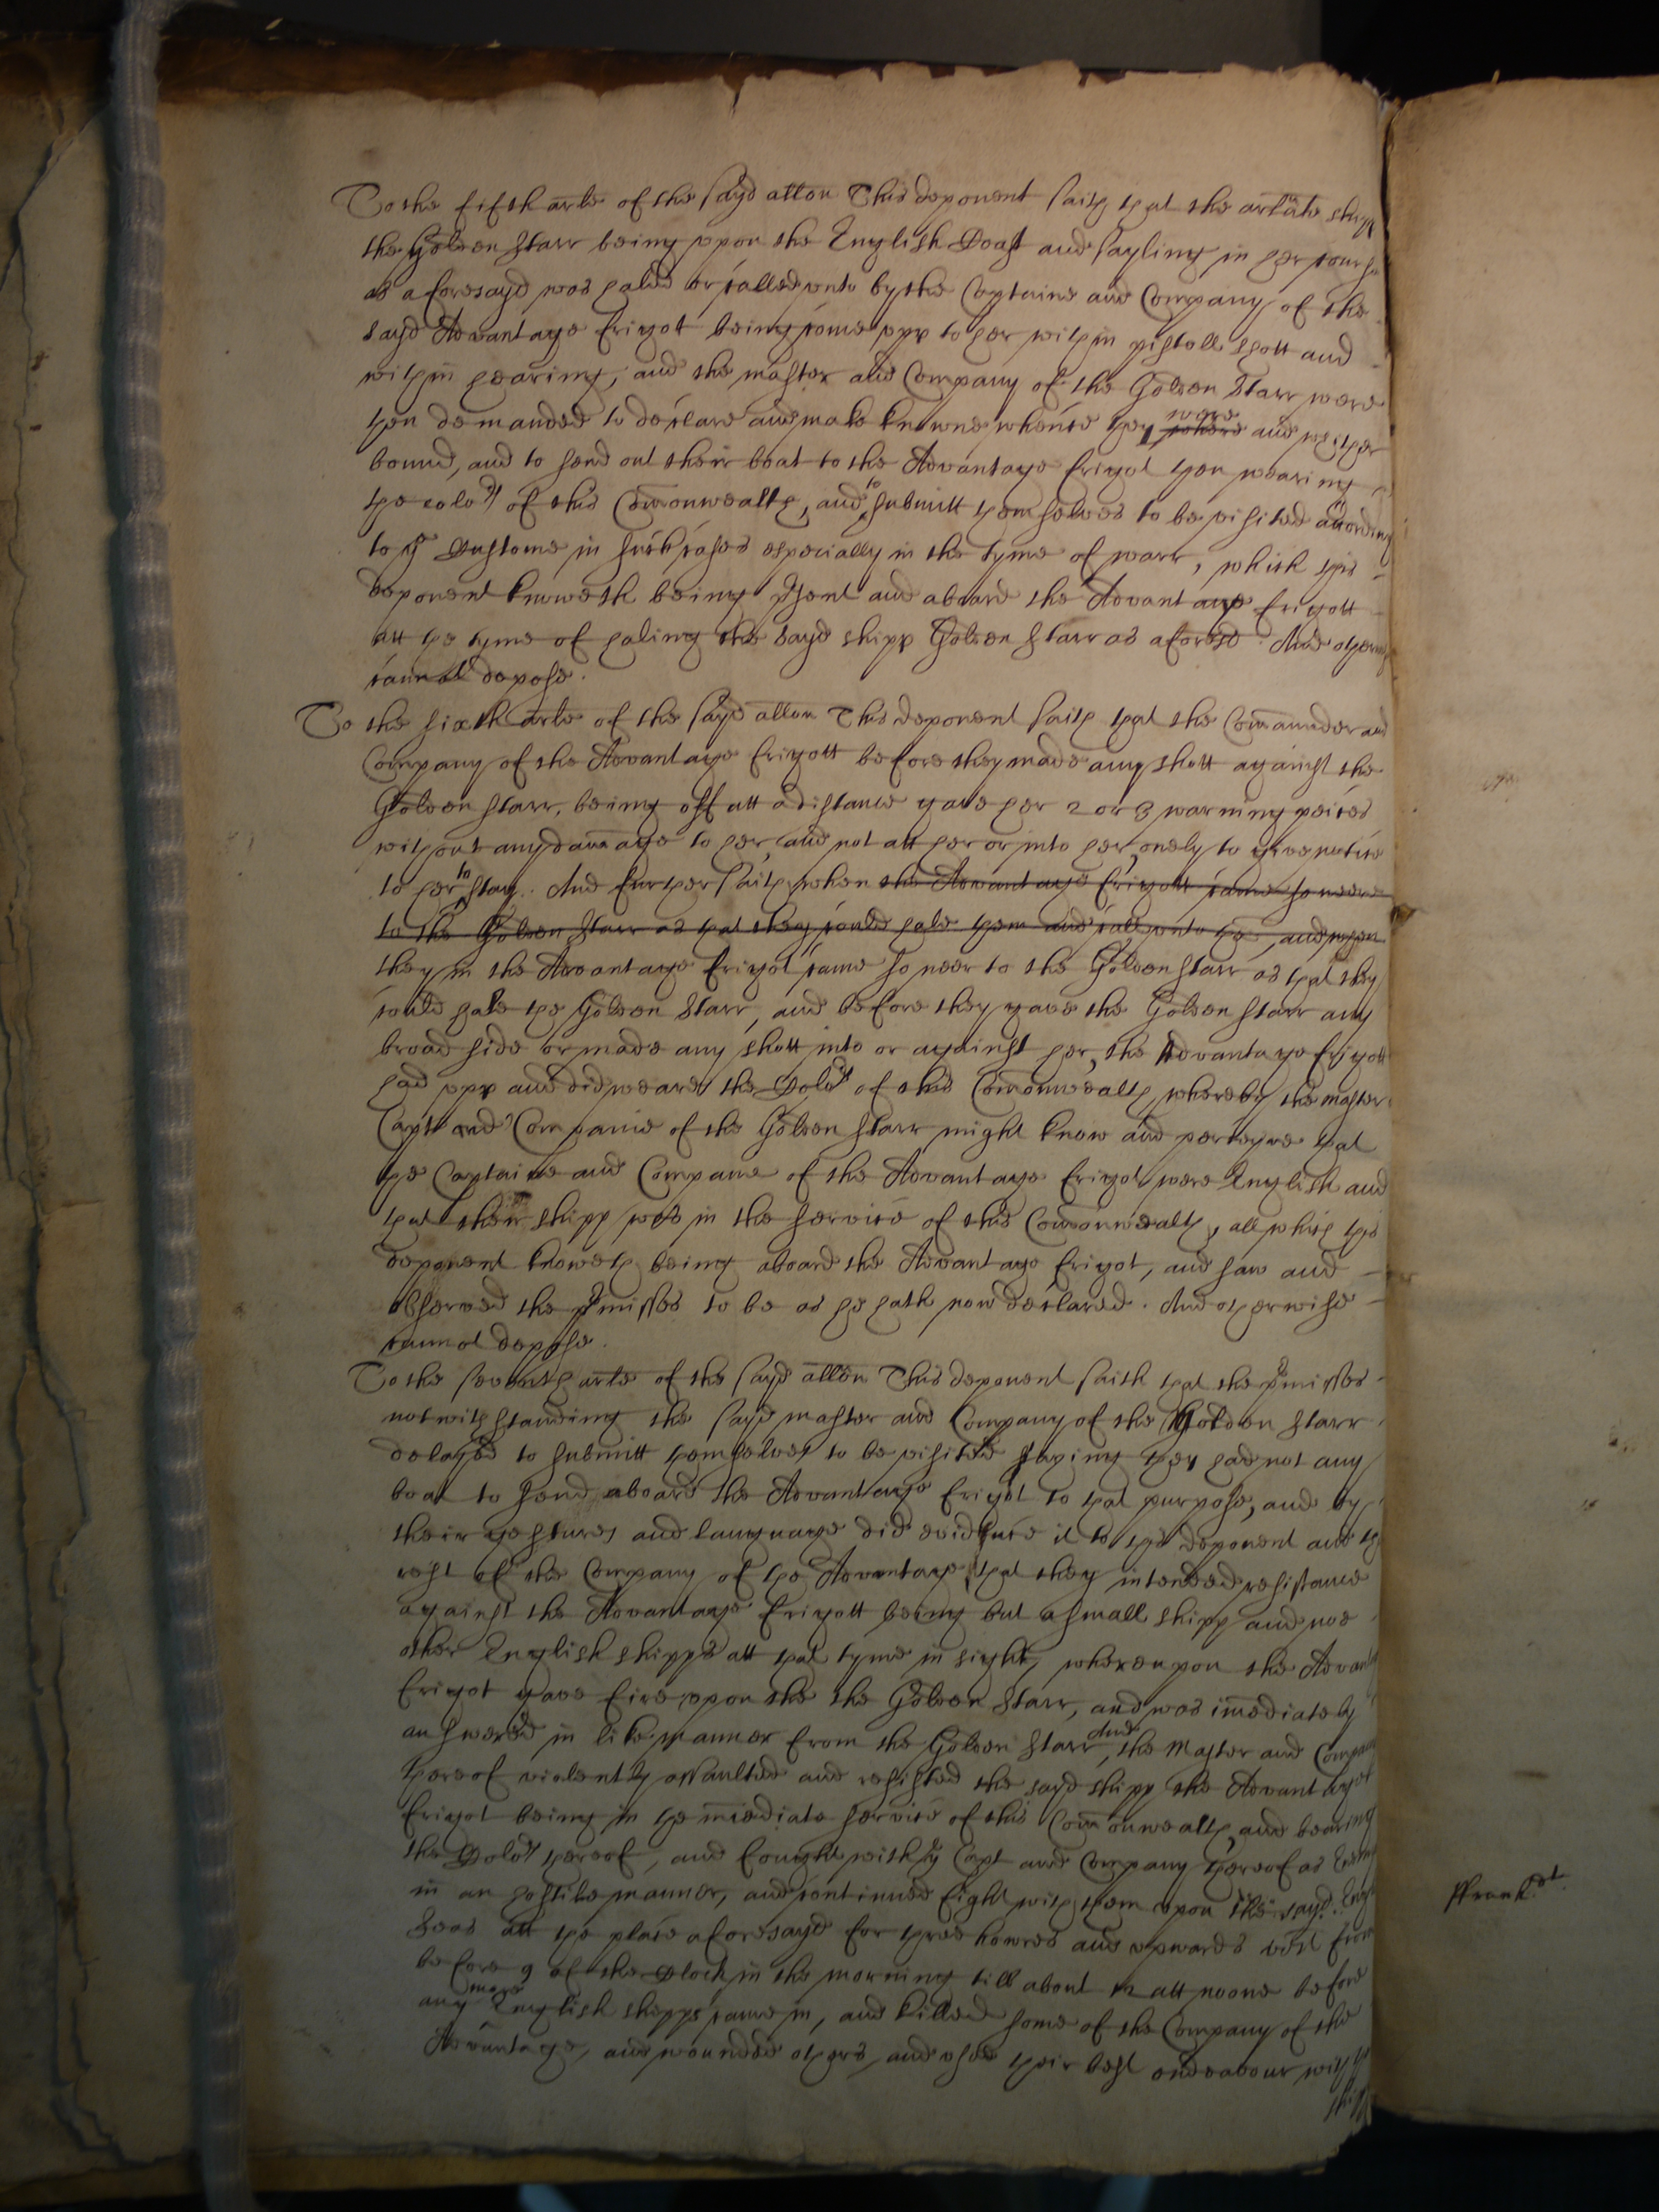 To the fifth arle of the sayd allon This deponent saith that the arlate shipp
the Golden Starr being upon the English Coast and sayling in her course
as aforesayd was haled or called unto by the Captaine and Company of the
sayd Advantage frigot being come upp to her within pistoll shott and
within hearing, and the master and Company of the Golden Starr were
then demanded to declare and make knowne whence they where were and whether
bound, and to send out their boat to the Advantage frigot then wearing
the colors of this Comonwealth, and to submitt themselves to be visited according
to ye Custome in such cases especially in the tyme of warr, which this
deponent knoweth being psent and aboard the Advantage frigott
att the tyme of haling the sayd shipp Golden Starr as aforesd. And otherwise
cannot depose.
To the sixth arle of the sayd allon This deponent saith that the Comaunder and
Company of the Advantage frigott before they made any shott against the
Golden Starr, being off att a distance gave her 2 or 3 warning peices
without any damage to her, and not att her or into her, onely to give notice
to her to stay. And further saith when the Advantage frigott came so neere
to the Golden Starr as that they could hale them and call unto them, and when
they in the Advantage frigot came so neer to the Golden Starr as that they
could hale the Golden Starr, and before they gave the Golden Starr any
broad side or made any shott into or against her, the Advantage frigott
had upp and did weare the Colors of this Comonwealth, whereby the master
Capt and Companie of the Golden Starr might know and perceyve that
the Captaine and Companie of the Advantage frigot were English and
that their shipp was in the service of this Comonwealth, all which this
deponent knoweth being aboard the Advantage frigot, and saw and
observed the pmisses to be as he hath now declared. And otherwise
cannot depose.
To the seventh arle of the sayd allon This deponent saith that the pmisses
notwithstanding the sayd master and Company of the Golden Starr
delayed to submitt themselves to be visited saying they had not any
boat to send aboard the Advantage frigot to that purpose, and by
their gestures and language did evidence it to this deponent and the
rest of the Company of the Advantage, that they intended resistance
against the Advantage frigott being but a small shipp and noe
other English shipps att that tyme in sight, whereupon the Advantage
frigot gave fire upon the the Golden Starr, and was imediately
answered in like manner from the Golden Starr, And the Master and Company
thereof violently assaulted and resisted the sayd shipp the Advantage
frigot being in the imediate service of this Comonwealth, and bearing
the Colors thereof, and fought with ye Capt and Company thereof as Enemies
in an hostile manner, and continued fight with them upon the sayd English
Seas att the place aforesayd for three howres and upwards vizt from
before 9 of the Clock in the morning till about 12 att noone before
any more English shipps came in, and killed some of the Company of the
Advantage, and wounded others, and used their best endeavour with